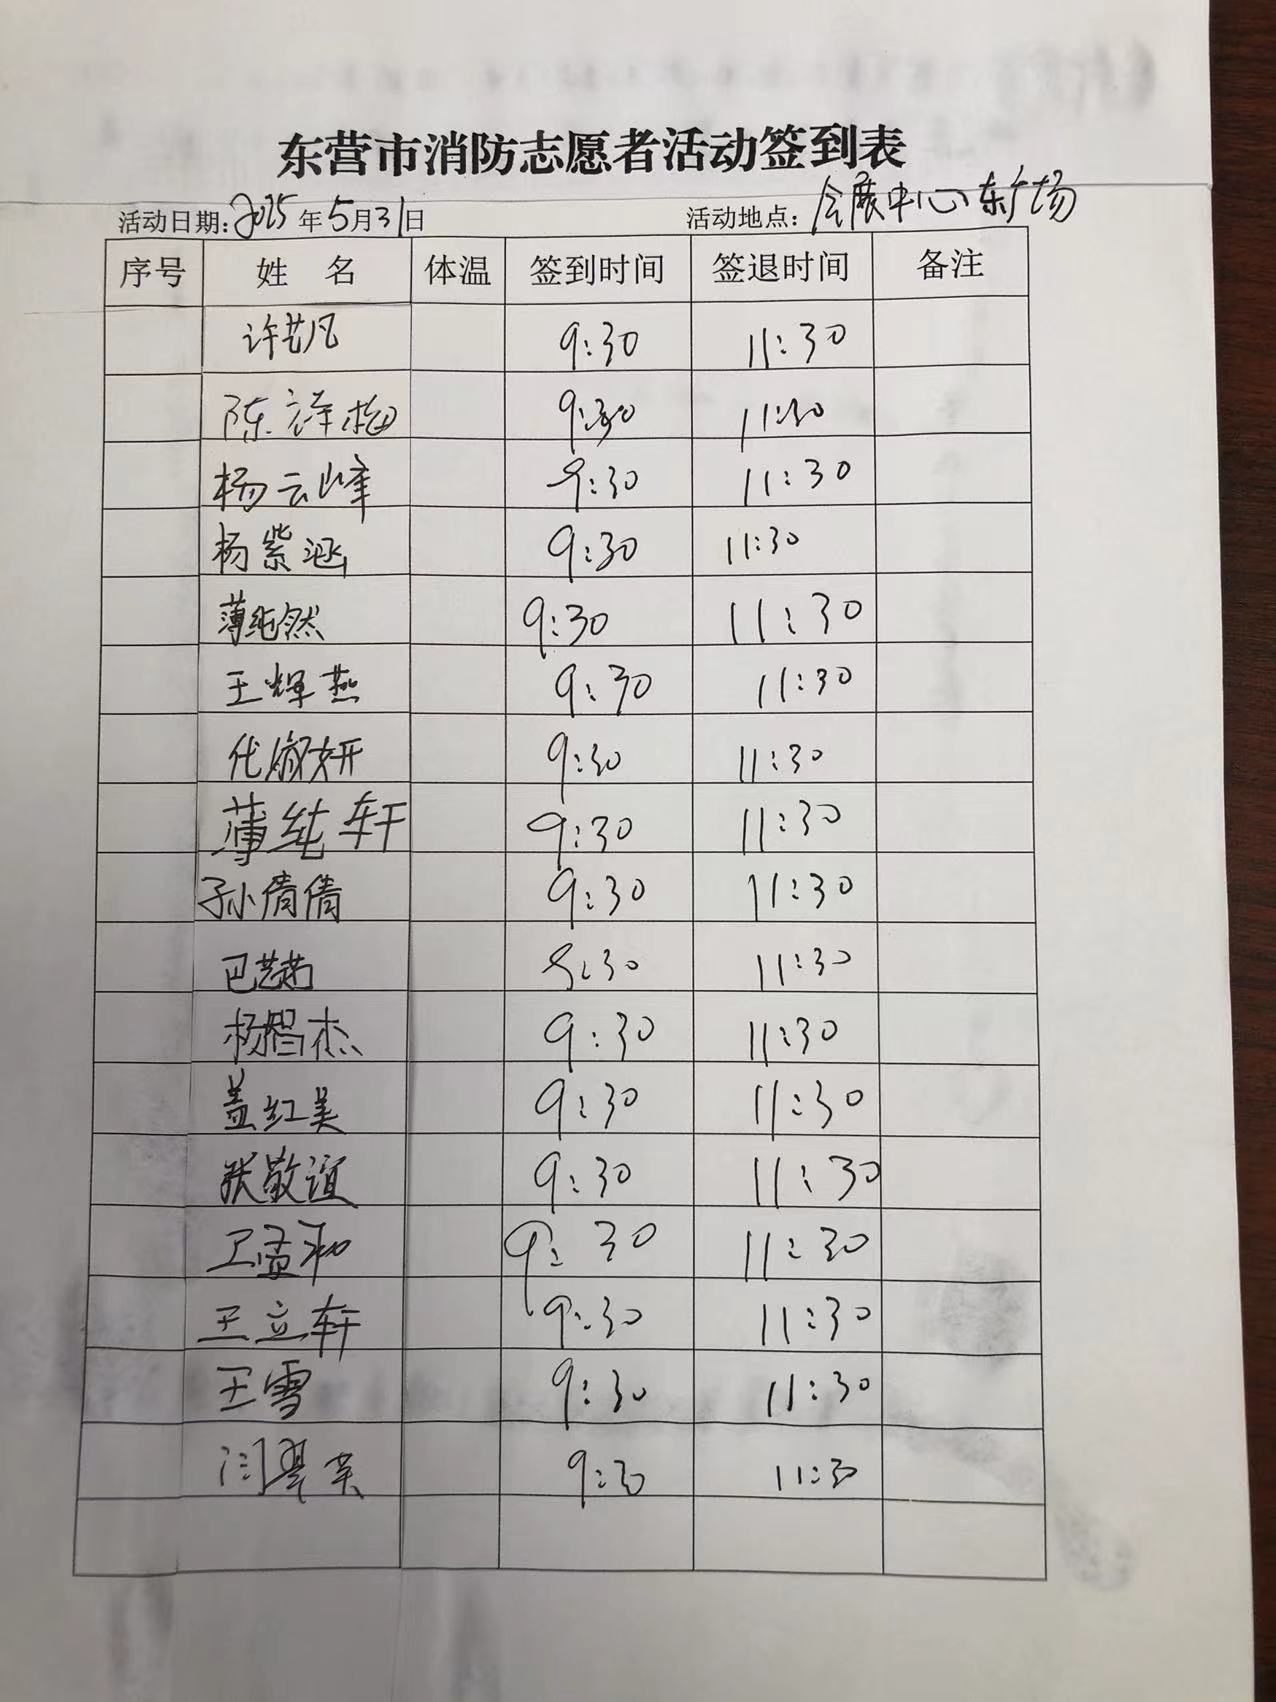 东营市消防志愿者活动签到表
活动日期:2025年5月31日 活动地点:会展中心东广场
序号 姓 名 体温 签到时间 签退时间 备注
许艺凡 9:30 11:30
陈祥梅 9:30 11:30
杨云峰 9:30 11:30
杨紫涵 9:30 11:30
薄纯然 9:30 11:30
王辉燕 9:30 11:30
代淑妍 9:30 11:30
薄纯轩 9:30 11:30
孙倩倩 9:30 11:30
巴艺菡 9:30 11:30
杨智杰 9:30 11:30
盖红美 9:30 11:30
张敬谊 9:30 11:30
9:30 11:30
王立轩 9:30 11:30
王雪 9:30 11:30
闫翠英 9:30 11:30